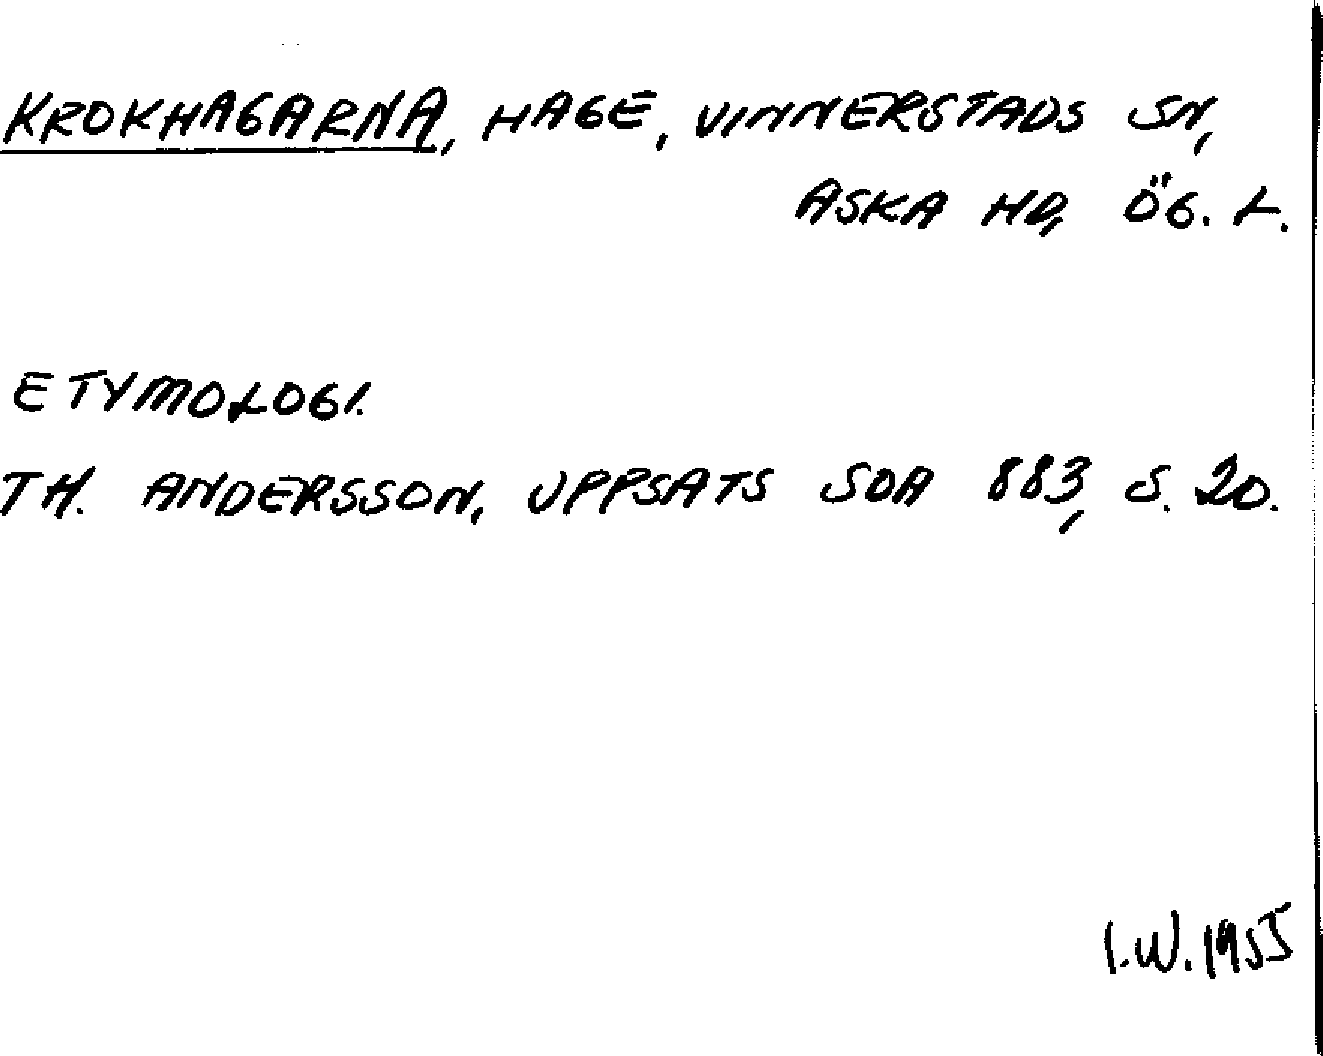 KROKHAGARNA, HAGE, VINNERSTADS SN,
ASKA HD, ÖG. L.
ETYMOLOGI.
TH. ANDERSSON, UPPSATS SOA 883, S. 20.
I.W. 1955